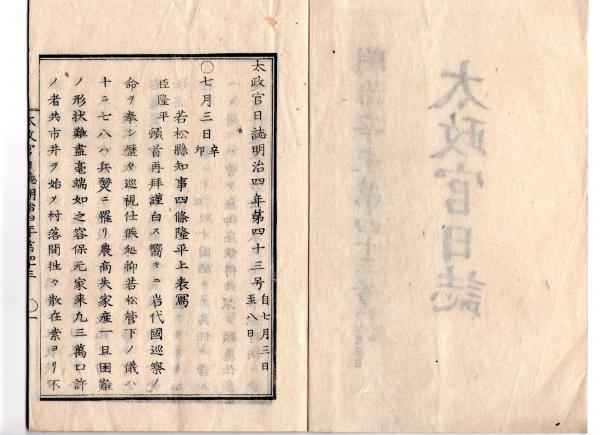 太政官日誌明治四年第四十三号 自七月三日至八日
〇七月三日 辛卯
若松縣知事四條隆平上表寫
臣隆平頓首再拜謹白ス嚮キニ岩代國巡察ノ
命ヲ奉シ歴々巡視仕候処抑若松管下ノ儀ハ
十ニ七八ハ兵燹ニ罹リ農商失家産一旦困難
ノ形状難盡毫端如之容保元家来九三萬口許
ノ者共市井ヲ始メ村落間徃々散在素ヨリ不
太政官日誌明治四年第四十三 〇一
太政官日誌